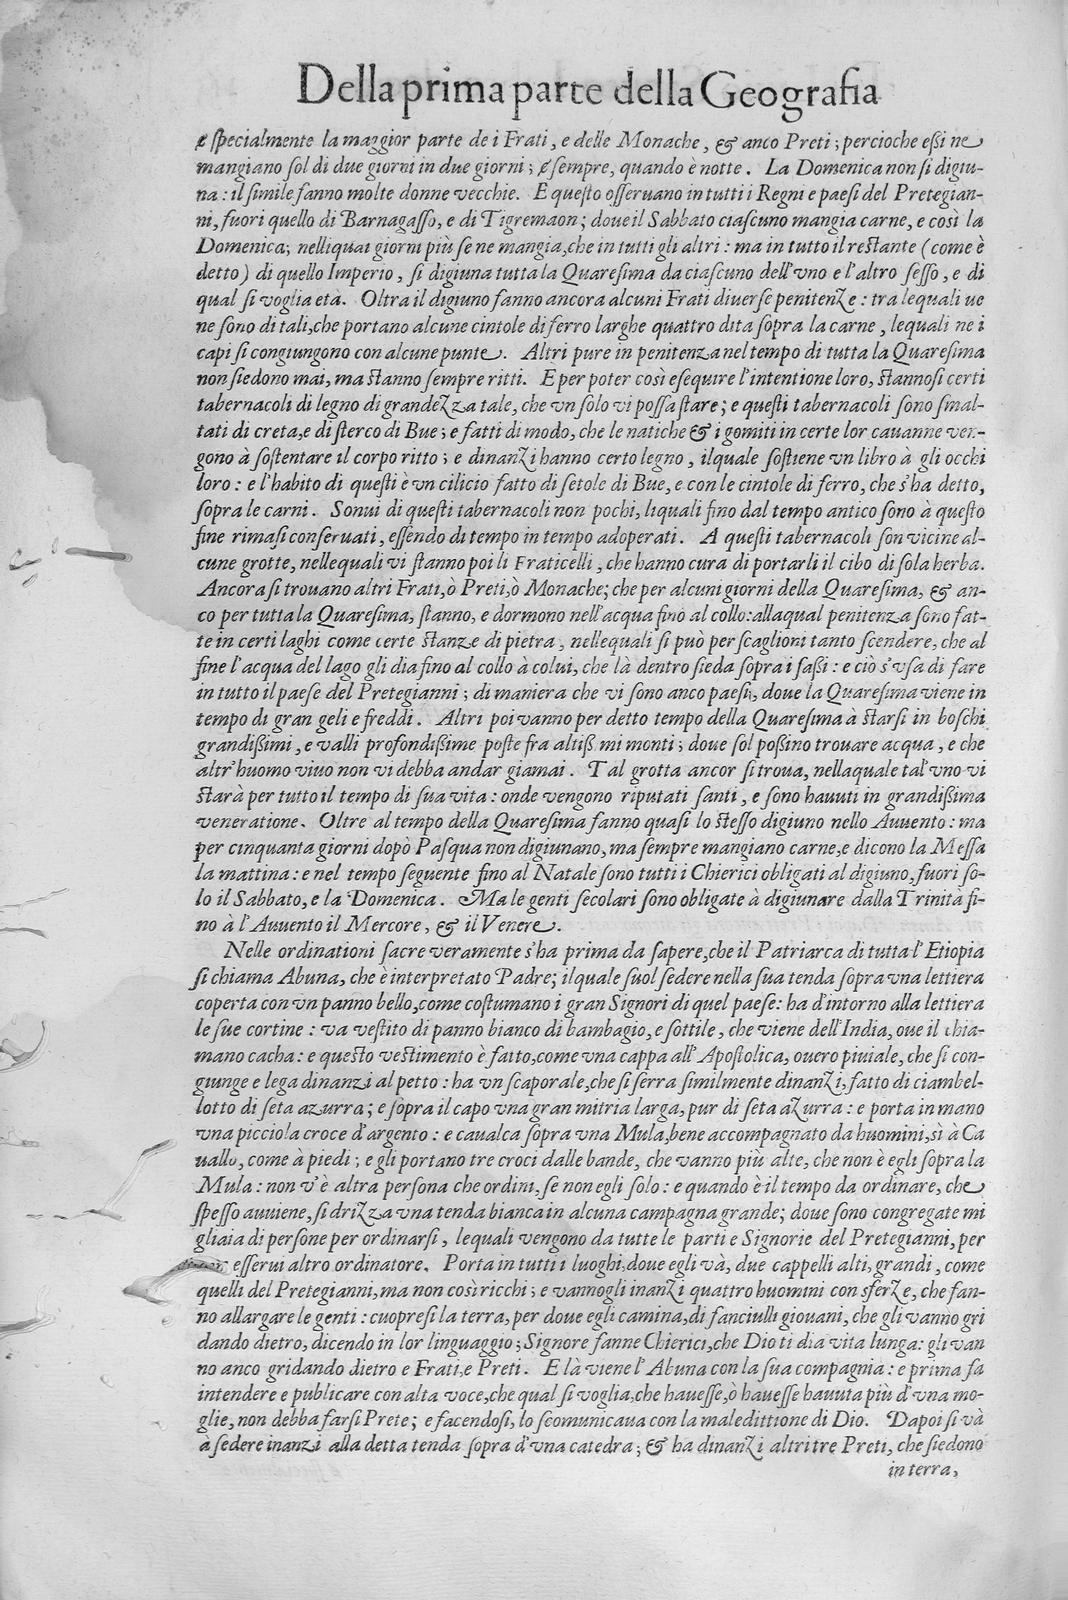 Della prima parte della Geografia
e specialmente la maggior parte de i Frati, e delle Monache, & anco Preti; percioche essi ne
mangiano sol di due giorni in due giorni; e sempre, quando è notte. La Domenica non si digiu-
na: il simile fanno molte donne vecchie. E questo osseruano in tutti i Regni e paesi del Pretegian-
ni, fuori quello di Barnagasso, e di Tigremaon; doue il Sabbato ciascuno mangia carne, e così la
Domenica; nelliquai giorni più se ne mangia, che in tutti gli altri: ma in tutto il restante (come è
detto) di quello Imperio, si digiuna tutta la Quaresima da ciascuno dell'vno e l'altro sesso, e di
qual si voglia età. Oltra il digiuno fanno ancora alcuni Frati diuerse penitenze: tra lequali ue
ne sono di tali, che portano alcune cintole di ferro larghe quattro dita sopra la carne, lequali ne i
capi si congiungono con alcune punte. Altri pure in penitenza nel tempo di tutta la Quaresima
non siedono mai, ma stanno sempre ritti. E per poter così esequire l'intentione loro, stannosi certi
tabernacoli di legno di grandezza tale, che vn solo vi possa stare; e questi tabernacoli sono smal-
tati di creta, e di sterco di Bue; e fatti di modo, che le natiche & i gomiti in certe lor cauanne ven-
gono à sostentare il corpo ritto; e dinanzi hanno certo legno, ilquale sostiene vn libro à gli occhi
loro: e l'habito di questi è vn cilicio fatto di setole di Bue, e con le cintole di ferro, che s'ha detto,
sopra le carni. Sonui di questi tabernacoli non pochi, liquali fino dal tempo antico sono à questo
fine rimasi conseruati, essendo di tempo in tempo adoperati. A questi tabernacoli son vicine al-
cune grotte, nellequali vi stanno poi li Fraticelli, che hanno cura di portarli il cibo di sola herba.
Ancora si trouano altri Frati, ò Preti, ò Monache; che per alcuni giorni della Quaresima, & an-
co per tutta la Quaresima, stanno, e dormono nell'acqua fino al collo: allaqual penitenza sono fat-
te in certi laghi come certe stanze di pietra, nellequali si può per scaglioni tanto scendere, che al
fine l'acqua del lago gli dia fino al collo à colui, che là dentro sieda sopra i sassi: e ciò s'vsa di fare
in tutto il paese del Pretegianni; di maniera che vi sono anco paesi, doue la Quaresima viene in
tempo di gran geli e freddi. Altri poi vanno per detto tempo della Quaresima à starsi in boschi
grandissimi, e valli profondissime poste fra altiss mi monti; doue sol possino trouare acqua, e che
altr'huomo viuo non vi debba andar giamai. Tal grotta ancor si troua, nellaquale tal'vno vi
starà per tutto il tempo di sua vita: onde vengono riputati santi, e sono hauuti in grandissima
veneratione. Oltre al tempo della Quaresima fanno quasi lo stesso digiuno nello Auuento: ma
per cinquanta giorni dopò Pasqua non digiunano, ma sempre mangiano carne, e dicono la Messa
la mattina: e nel tempo seguente fino al Natale sono tutti i Chierici obligati al digiuno, fuori so-
lo il Sabbato, e la Domenica. Ma le genti secolari sono obligate à digiunare dalla Trinità fi-
no à l'Auuento il Mercore, & il Venere.
Nelle ordinationi sacre veramente s'ha prima da sapere, che il Patriarca di tutta l'Etiopia
si chiama Abuna, che è interpretato Padre; ilquale suol sedere nella sua tenda sopra vna lettiera
coperta con vn panno bello, come costumano i gran Signori di quel paese: ha d'intorno alla lettiera
le sue cortine: va vestito di panno bianco di bambagio, e sottile, che viene dell'India, oue il chia-
mano cacha: e questo vestimento è fatto, come vna cappa all'Apostolica, ouero piuiale, che si con-
giunge e lega dinanzi al petto: ha vn scaporale, che si serra similmente dinanzi, fatto di ciambel-
lotto di seta azurra; e sopra il capo vna gran mitria larga, pur di seta azurra: e porta in mano
vna picciola croce d'argento: e caualca sopra vna Mula, bene accompagnato da huomini, sì à Ca
uallo, come à piedi; e gli portano tre croci dalle bande, che vanno più alte, che non è egli sopra la
Mula: non v'è altra persona che ordini, se non egli solo: e quando è il tempo da ordinare, che
spesso auuiene, si drizza vna tenda bianca in alcuna campagna grande; doue sono congregate mi
gliaia di persone per ordinarsi, lequali vengono da tutte le parti e Signorie del Pretegianni, per
esserui altro ordinatore. Porta in tutti i luoghi, doue egli và, due cappelli alti, grandi, come
quelli del Pretegianni, ma non così ricchi; e vannogli inanzi quattro huomini con sferze, che fan-
no allargare le genti: cuopresi la terra, per doue egli camina, di fanciulli giouani, che gli vanno gri
dando dietro, dicendo in lor linguaggio; Signore fanne Chierici, che Dio ti dia vita lunga: gli van
no anco gridando dietro e Frati, e Preti. E là viene l'Abuna con la sua compagnia: e prima fa
intendere e publicare con alta voce, che qual si voglia, che hauesse, ò hauesse hauuta più d'vna mo-
glie, non debba farsi Prete; e facendosi, lo scomunicaua con la maledittione di Dio. Dapoi si và
à sedere inanzi alla detta tenda sopra d'vna catedra; & ha dinanzi altri tre Preti, che siedono
in terra,